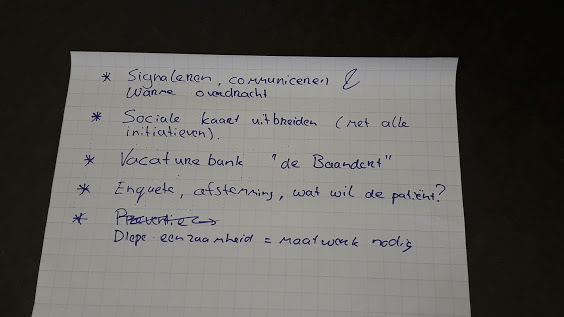 * Signaleren, communiceren &
warme overdracht
* Sociale kaart uitbreiden (met alle
initiatieven).
* Vacature bank "de Baandert"
* Enquete, afstemming, wat wil de patiënt?
* Preventie →
Diepe eenzaamheid = maatwerk nodig